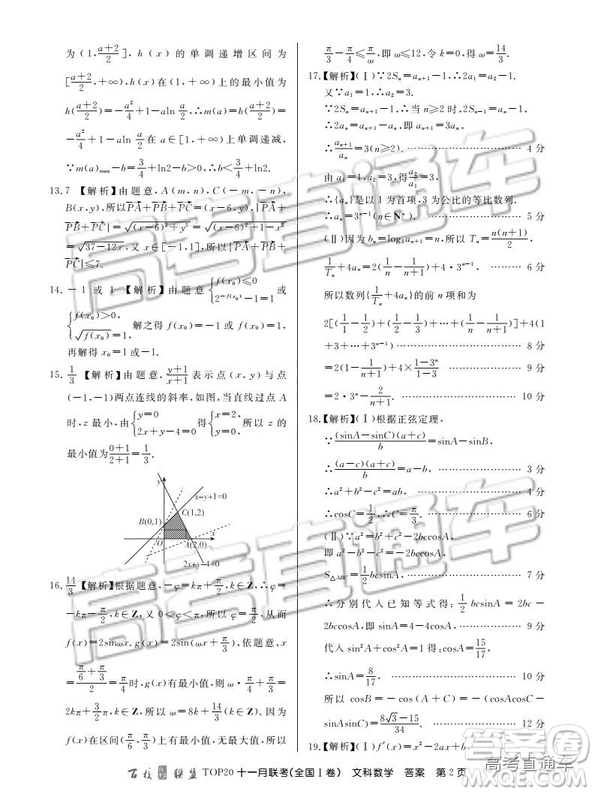 为(1,$\frac{a+2}{2}$],h(x)的单调递增区间为
[$\frac{a+2}{2}$,+∞),h(x)在[1,+∞)上的最小值为
h($\frac{a+2}{2}$)=-$\frac{a^2}{4}$+1-aln$\frac{a}{2}$.
∴m(a)=-$\frac{a^2}{4}$+1-aln$\frac{a}{2}$在a∈[1,+∞)上单调递减,
∴m(a)$_{max}$-b=$\frac{3}{4}$+ln2-b>0,∴b<$\frac{3}{4}$+ln2.
13.7 【解析】由题意,A(m,n),C(-m,-n),
B(x,y),所以$\overrightarrow{PA}$+$\overrightarrow{PB}$+$\overrightarrow{PC}$=(x-6,y),|$\overrightarrow{PA}$+
$\overrightarrow{PB}$+$\overrightarrow{PC}$|=$\sqrt{(x-6)^2+y^2}$=$\sqrt{(x-6)^2+1-x^2}$
=$\sqrt{37-12x}$,又x∈[-1,1],所以|$\overrightarrow{PA}$+$\overrightarrow{PB}$+
$\overrightarrow{PC}$|≤7.
14.-1或1 【解析】由题意{f(x₀)≤0 2^{-f(x₀)}-1=1 或
{f(x₀)>0, $\sqrt{f(x_0)}$=1. 解之得f(x₀)=-1或f(x₀)=1,
再解得x₀=1或x₀=-1.
15.$\frac{1}{3}$ 【解析】由题意,$\frac{y+1}{x+1}$表示点(x,y)与点
(-1,-1)两点连线的斜率,如图,当直线过点A
时,z最小,由{y=0 2x+y-4=0 得{x=2 y=0,所以z的
最小值为$\frac{0+1}{2+1}$=$\frac{1}{3}$.
x-y+1=0
C(1,2)
B(0,1)
A(2,0)
16.$\frac{14}{3}$ 【解析】根据题意,-φ=kπ+$\frac{π}{2}$,k∈Z,
f(x)=2sin(ωx+$\frac{π}{3}$),依题意,x=
$\frac{\frac{π}{6}+\frac{π}{3}}{2}$=$\frac{π}{4}$时,y(x)有最小值,则ω·$\frac{π}{4}$+$\frac{π}{3}$=
2kπ+$\frac{3π}{2}$,k∈Z,所以ω=8k+$\frac{14}{3}$(k∈Z),因为
f(x)在区间($\frac{π}{6}$,$\frac{π}{3}$)上有最小值无最大值,所以
$\frac{π}{3}$-$\frac{π}{4}$≤$\frac{π}{ω}$,即ω≤12,令k=0,得ω=$\frac{14}{3}$.
17.【解析】(Ⅰ)∵2Sₙ=aₙ₊₁-1,∴2a₁=a₂-1.
∴2Sₙ=aₙ₊₁-1,∴当n≥2时,2Sₙ₋₁=aₙ-1,
∴2aₙ=aₙ₊₁-aₙ,∴3aₙ=aₙ₊₁,∴
$\frac{a_{n+1}}{a_n}$=3(n≥2).………………3分
∴{aₙ}是以1为首项,3为公比的等比数列.
∴aₙ=3ⁿ⁻¹(n∈N*)………………5分
(Ⅱ)因为bₙ=log₃aₙ₊₁=n,所以Tₙ=$\frac{n(n+1)}{2}$.
………………6分
$\frac{1}{T_n}$+4aₙ=2($\frac{1}{n}$-$\frac{1}{n+1}$)+4·3ⁿ⁻¹,………………6分
所以数列{$\frac{1}{T_n}$+4aₙ}的前n项和为
2[($\frac{1}{1}$-$\frac{1}{2}$)+($\frac{1}{2}$-$\frac{1}{3}$)+…+($\frac{1}{n}$-$\frac{1}{n+1}$)]+4(1
+3+…+3ⁿ⁻¹)………………8分
=2(1-$\frac{1}{n+1}$)+4×$\frac{1-3^n}{1-3}$
=2·3ⁿ-$\frac{2}{n+1}$.………………10分
18.【解析】(Ⅰ)根据正弦定理,
∵$\frac{(sinA-sinC)(a+c)}{b}$=sinA-sinB,
∴$\frac{(a-c)(a+c)}{b}$=a-b.………………3分
∴a²+b²-c²=ab………………4分
∴cosC=$\frac{1}{2}$,∴C=$\frac{π}{3}$.………………6分
(Ⅱ)∵a²=b²+c²-2bccosA,
即a²-b²-c²=-2bccosA,
∴分别代入已知等式得:$\frac{1}{2}$bcsinA=
2bc-2bccosA,即sinA=4-4cosA.………………9分
代入sin²A+cos²A=1得,cosA=$\frac{15}{17}$,
∴sinA=$\frac{8}{17}$.………………10分
所以cosB=-cos(A+C)=-(cosAcosC-
sinAsinC)=$\frac{8\sqrt{3}-15}{34}$.………………12分
19.【解析】(Ⅰ)
百校联盟 TOP20 十一月联考(全国Ⅰ卷) 文科数学 答案 第2页
高考直通车